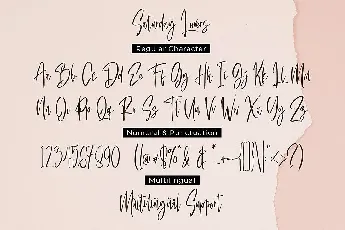 Saturday Lovers
Regular Character
Aa Bb Cc Dd Ee Ff Gg Hh Ii Gg Kk Ll Mm
Nn Oo Pp Qq Rr Ss Tt Uu Vv Ww Xx Yy Zz
Numeral & Punctuation
1234567890
Multilingual
Multilingual Support